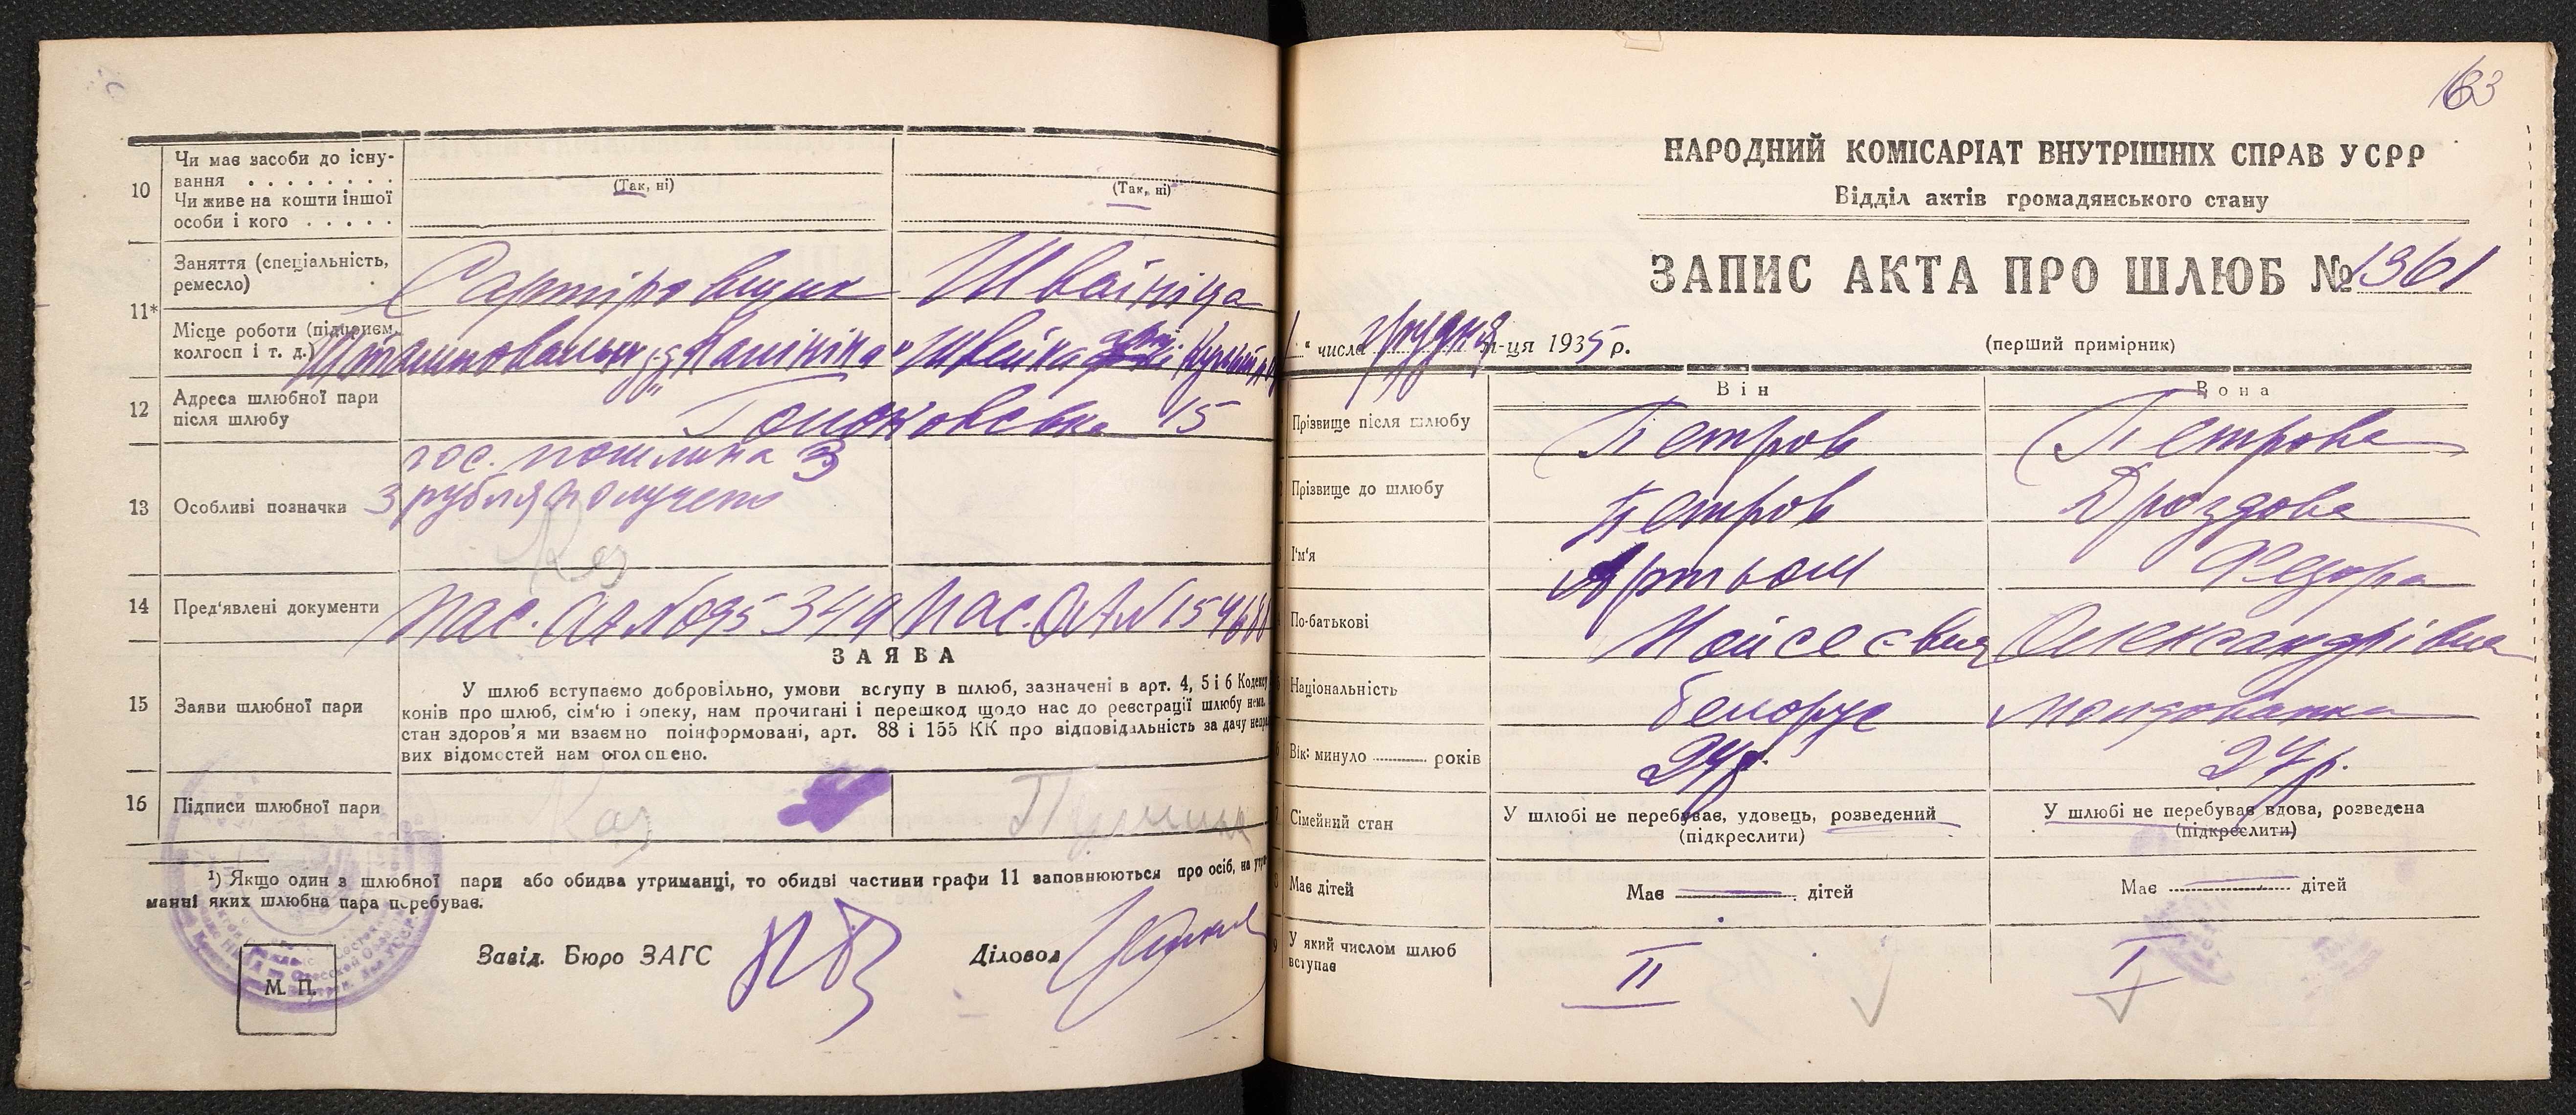 10
Чи має засоби до існу-
вання . . . . . . . .
(Так, ні)
(Так, ні)
Чи живе на кошти іншої
особи і кого . . . . .
11*
Заняття (спеціальність,
ремесло)
Сартіровщик
Швейніца
Місце роботи (підприєм.
колгосп і т. д.)
12
Адреса шлюбної пари
після шлюбу
15
13
Особливі позначки
гос. пошлина 3
3 рубля получено
14
Пред'явлені документи
пас. ОА № 095349
пас. ОА №
ЗАЯВА
15
Заяви шлюбної пари
У шлюб вступаємо добровільно, умови вступу в шлюб, зазначені в арт. 4, 5 і 6 Кодексу
конів про шлюб, сім'ю і опеку, нам прочитані і перешкод щодо нас до реєстрації шлюбу нема.
стан здоров'я ми взаємно поінформовані, арт. 88 і 155 КК про відповідальність за дачу непра
вих відомостей нам оголошено.
16
Підписи шлюбної пари
¹) Якщо один з шлюбної пари або обидва утриманці, то обидві частини графи 11 заповнюються про осіб, на утри
манні яких шлюбна пара перебуває.
Завід. Бюро ЗАГС
Діловод
М. П.
163
НАРОДНИЙ КОМІСАРІАТ ВНУТРІШНІХ СПРАВ УСРР
Відділ актів громадянського стану
ЗАПИС АКТА ПРО ШЛЮБ № 1361
" числа грудня м-ця 1935 р.
(перший примірник)
Він
Вона
Прізвище після шлюбу
Петров
Петрова
Прізвище до шлюбу
Петров
Дроздова
І'м'я
Артьом
Федора
По-батькові
Мойсеєвич
Олександрівна
Національність
белорус
молдованка
Вік: минуло ......... років
24 р.
24 р.
Сімейний стан
У шлюбі не перебував, удовець, розведений
(підкреслити)
У шлюбі не перебував вдова, розведена
(підкреслити)
Має дітей
Має ............ дітей
Має ............ дітей
У який числом шлюб
вступає
II
I